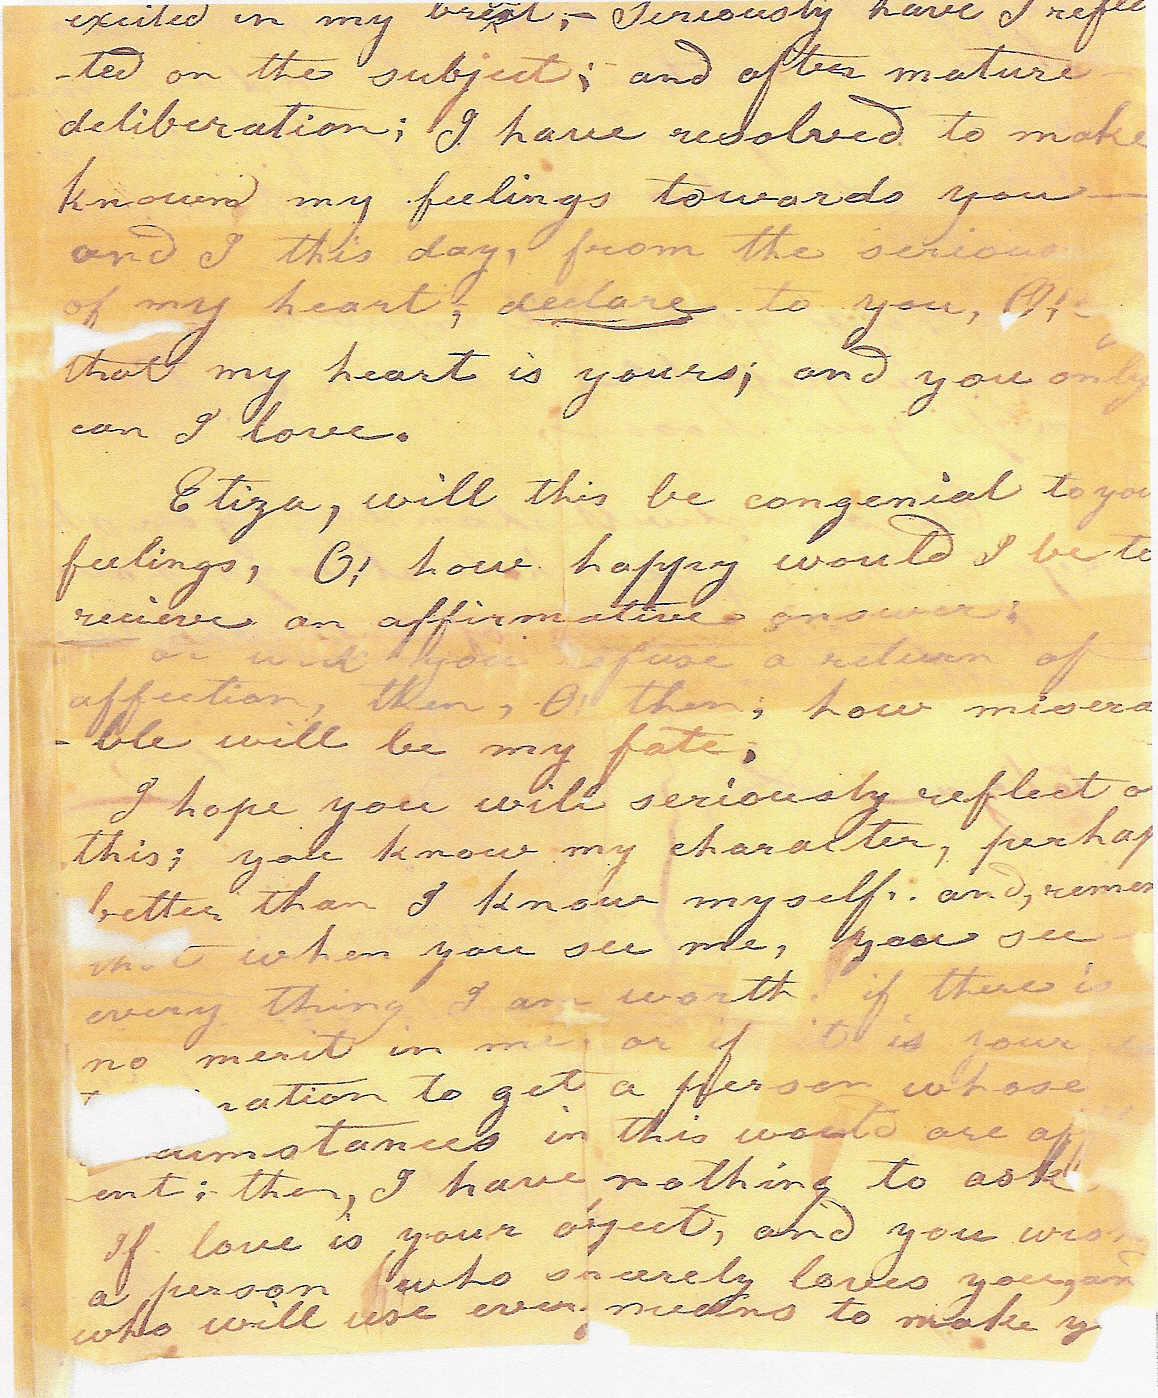 excited in my brest;- Seriously have I reflec
-ted on the subject; and after mature
deliberation; I have resolved to make
known my feelings towards you—
and I this day, from the serious
of my heart; declare to you, O!
that my heart is yours; and you only
can I love.
Eliza, will this be congenial to you
feelings, O! how happy would I be to
recieve an affirmative answer;
or will you refuse a return of
affection, then, O! then; how misera
-ble will be my fate;
I hope you will seriously reflect o
this; you know my character, perhap
better than I know myself: and, remem
that when you see me, you see
every thing I am worth. if there is
no merit in me; or if it is your
ination to get a person whose
cumstances in this would are ap
-ent; then, I have nothing to ask.
If love is your oject, and you wi
a person who sincerely loves you, and
who will use every means to make y